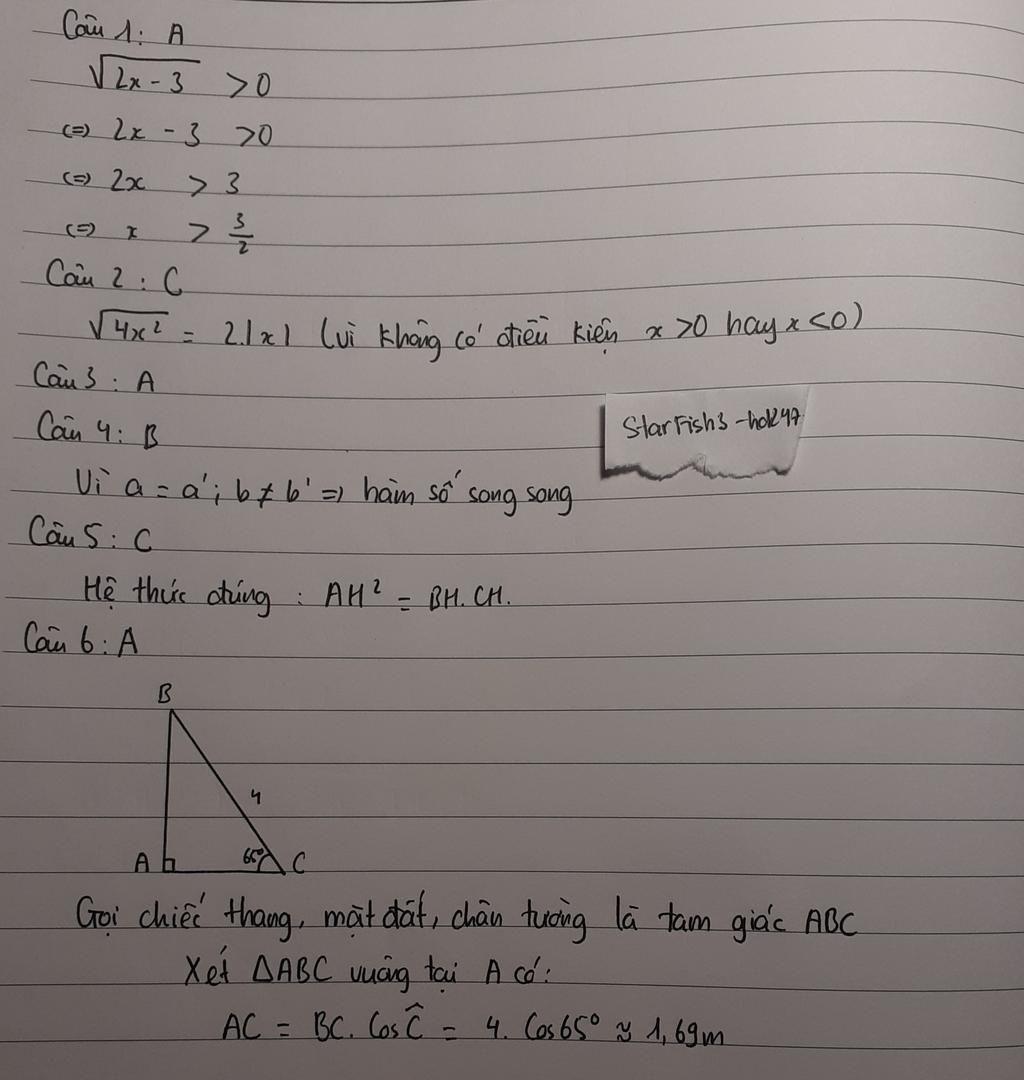 Câu 1: A
√2x - 3 > 0
<=> 2x - 3 > 0
<=> 2x > 3
<=> x > 3/2
Câu 2: C
√4x² = 2.|x| (vì không có điều kiện x >0 hay x <0)
Câu 3: A
StarFish3 -hok247
Câu 4: B
Vì a = a'; b ≠ b' => hàm số song song
Câu 5: C
Hệ thức đúng : AH² = BH. CH.
Câu 6: A
B
4
A 65° C
Gọi chiếc thang, mặt đất, chân tường là tam giác ABC
Xét ΔABC vuông tại A có:
AC = BC. Cos Ĉ = 4. Cos65° ≈ 1,69m